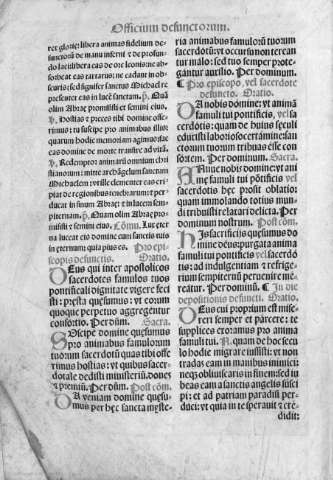 Officium defunctorum.
rex glorie: libera animas fidelium de-
functorũ de manu inferni ⁊ de profun-
do lacu: libera eas de ore leonis: ne ab-
sorbeat eas tartarus: ne cadant in ob-
scuris: sed signifer sanctus Michael re
presentet eas in lucẽ sanctam. Quã
olim Abrae promisisti et semini eius.
Hostias ⁊ preces tibi domine offe-
rimus: tu suscipe pro animabus illis:
quarum hodie memoriam agimus: fac
eas domine de morte transire ad vitã.
Redemptor animarũ omnium chri
stianorum: mitte archãgelum sanctum
Michaelem: vt
de regionibus tenebrarum: et
perducat in sinum Abrae: et in lucem sem
piternam. Quam olim Abrae pro-
misisti et semini eius. Cõmu. Lux eter
na luceat eis domine cum sanctis tuis
in eternum: quia pius es. Pro epi-
scopis defunctis. Oratio.
Deus qui inter apostolicos
sacerdotes famulos tuos
pontificali dignitate vigere feci
sti: presta quesumus: vt eorum
quoque perpetuo aggregentur
consortio. Per dñm. Sacra.
Suscipe domine quesumus
pro animabus famulorum
tuorum sacerdotũ quas tibi offe
rimus hostias: vt quibus sacer-
dotale dedisti ministeriũ: dones
⁊ premiũ. Per dñm. Post cõm.
Da veniam domine quesu-
mus per hec sancta myste-
ria animabus famulorũ tuorum
sacerdotũ: vt occursum non terean
tur malo: sed tuo semper prote-
gantur auxilio. Per dominum.
Pro episcopo, vel sacerdote
defuncto. Oratio.
Da nobis domine: vt animã
famuli tui pontificis, vel sa
cerdotis: quam de huius seculi
eduxisti laborioso certamine: san
ctorum tuorum tribuas esse con
sortem. Per dominum. Sacra.
Annue nobis domine: vt ani
me famuli tui pontificis vel
sacerdotis hec prosit oblatio:
quam immolando totius mun-
di tribuisti relaxari delicta. Per
dominum nostrum. Post cõm.
His sacrificiis quesumus do
mine deus: purgata anima
famuli tui pontificis vel sacerdo
tis: ad indulgentiam ⁊ refrige-
rium sempiternũ peruenire me-
reatur. Per dominũ. In die
depositionis defuncti. Oratio.
Deus cui proprium est mise-
reri semper et parcere: te
supplices exoramus pro anima
famuli tui. N. quam de hoc secu
lo hodie migrare iussisti: vt non
tradas eam in manibus inimici:
neque obliuiscaris in finem: sed iu
beas eam a sanctis angelis susci
pi: et ad patriam paradisi per-
duci: vt quia in te sperauit ⁊ cre-
didit: